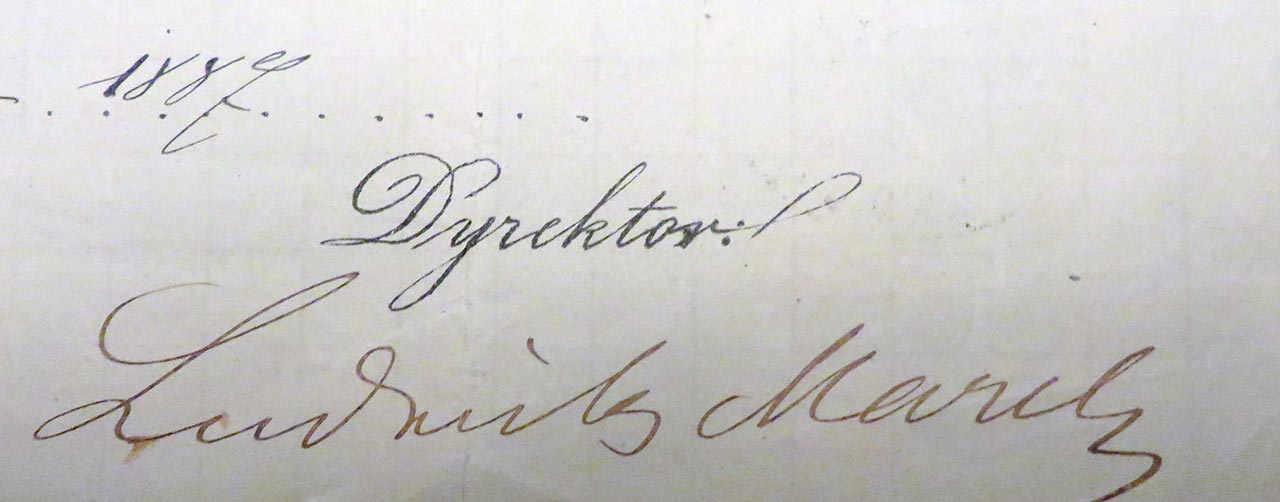 1887
Dyrektor:
Ludwik Marek